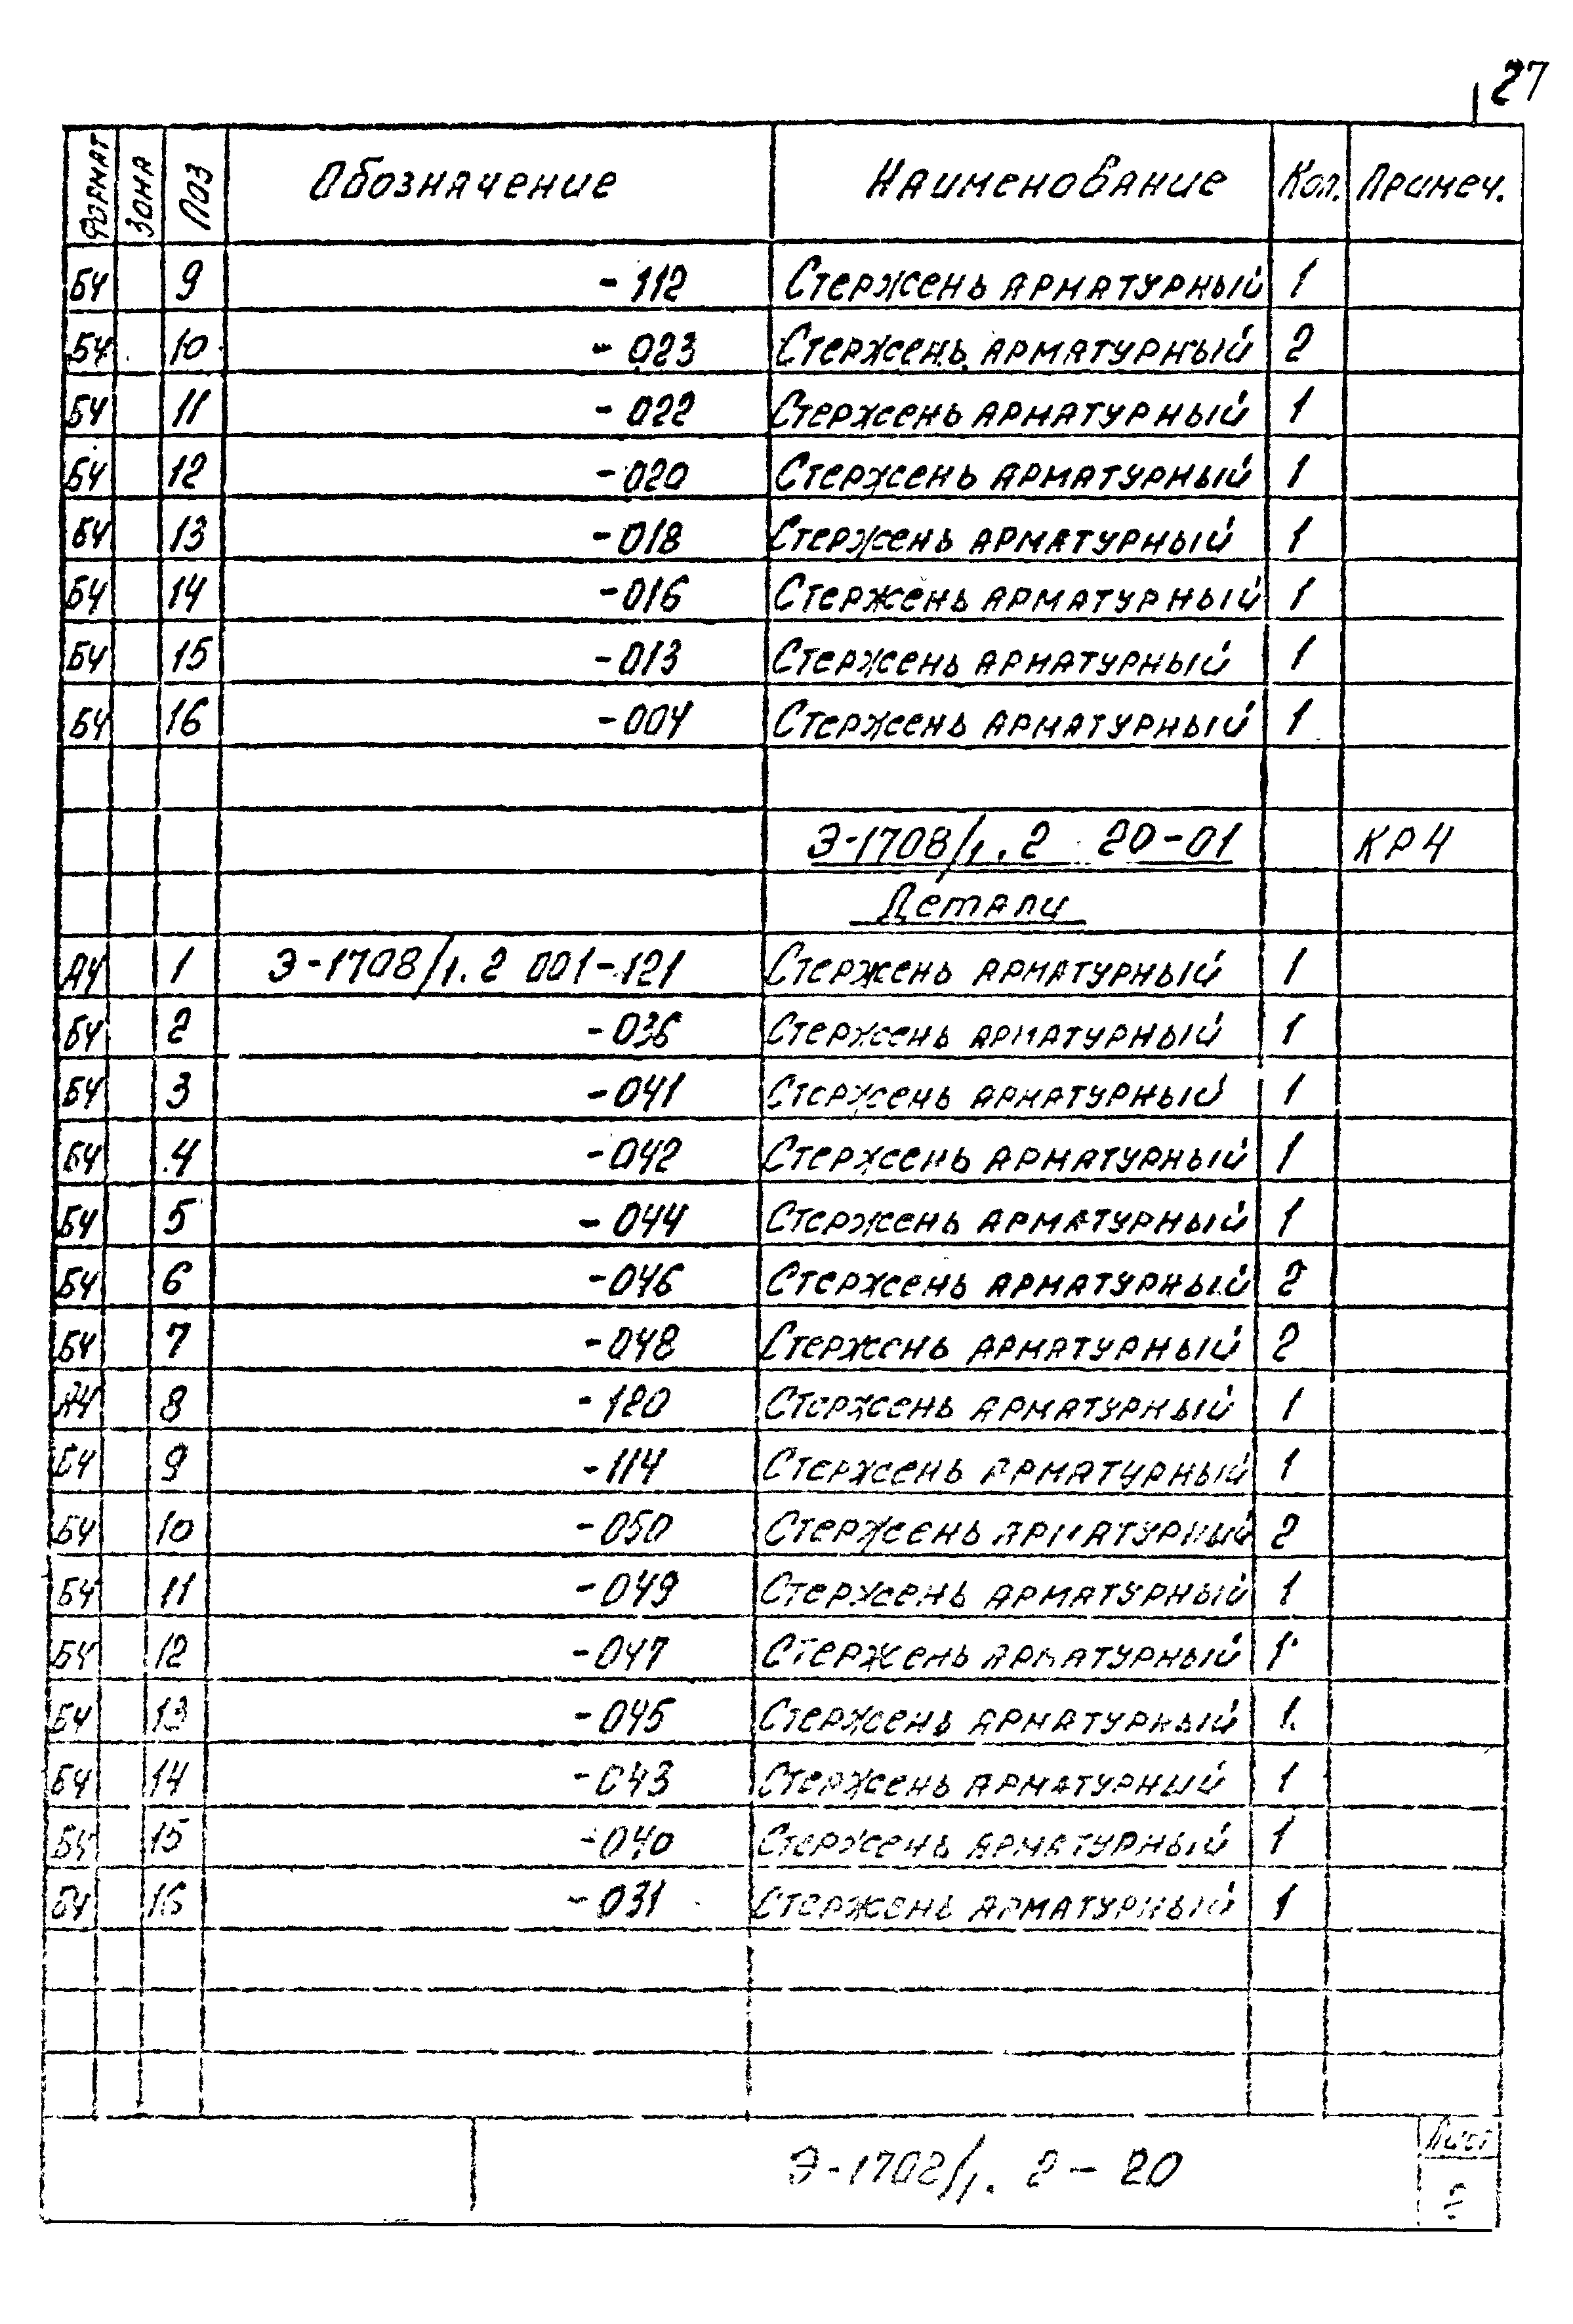 27
Формат Зона Поз Обозначение Наименование Кол. Примеч.
БЧ 9 -112 Стержень арматурный 1
БЧ 10 -023 Стержень арматурный 2
БЧ 11 -022 Стержень арматурный 1
БЧ 12 -020 Стержень арматурный 1
БЧ 13 -018 Стержень арматурный 1
БЧ 14 -016 Стержень арматурный 1
БЧ 15 -013 Стержень арматурный 1
БЧ 16 -004 Стержень арматурный 1
Э-1708/1.2 20-01 КР4
Детали
А4 1 Э-1708/1.2 001-121 Стержень арматурный 1
БЧ 2 -036 Стержень арматурный 1
БЧ 3 -041 Стержень арматурный 1
БЧ 4 -042 Стержень арматурный 1
БЧ 5 -044 Стержень арматурный 1
БЧ 6 -046 Стержень арматурный 2
БЧ 7 -048 Стержень арматурный 2
А4 8 -120 Стержень арматурный 1
БЧ 9 -114 Стержень арматурный 1
БЧ 10 -050 Стержень арматурный 2
БЧ 11 -049 Стержень арматурный 1
БЧ 12 -047 Стержень арматурный 1
БЧ 13 -045 Стержень арматурный 1
БЧ 14 -043 Стержень арматурный 1
БЧ 15 -040 Стержень арматурный 1
БЧ 16 -031 Стержень арматурный 1
Э-1708/1. 2-20
Лист